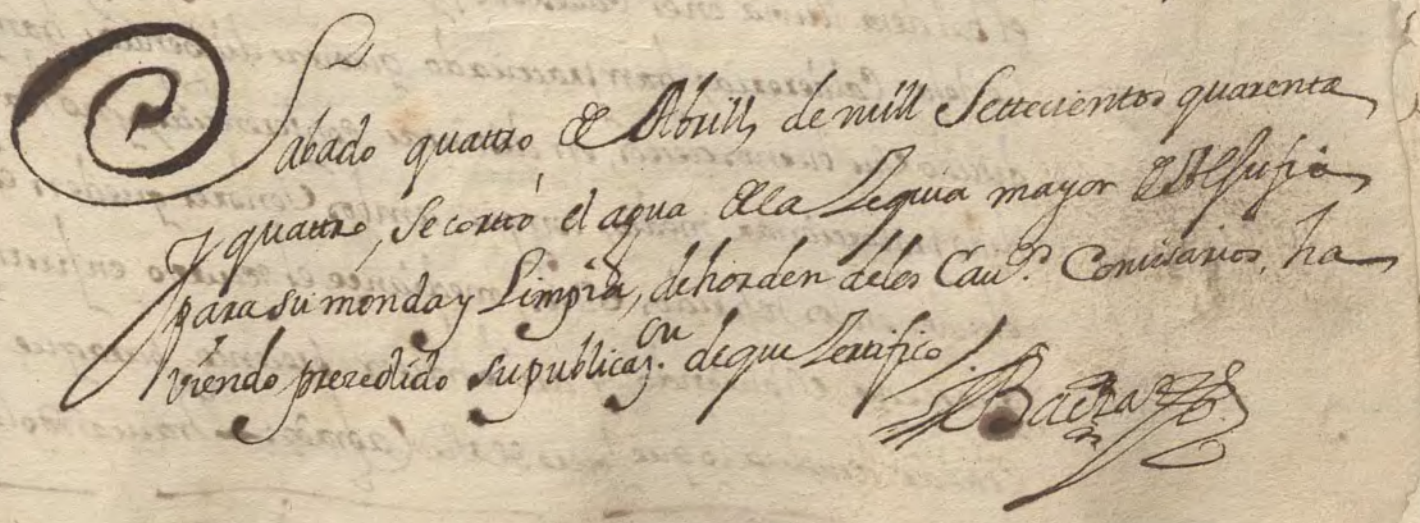 Sabado quattro de Abrill, de mill Settecientos quarenta
y quattro, se cortó el agua de la Zequia mayor de Alsufia
para su monda y Limpia, de horden delos Cavs. Comisarios, ha
viendo prezedido su publicazon. de que Zertifico
Baeza